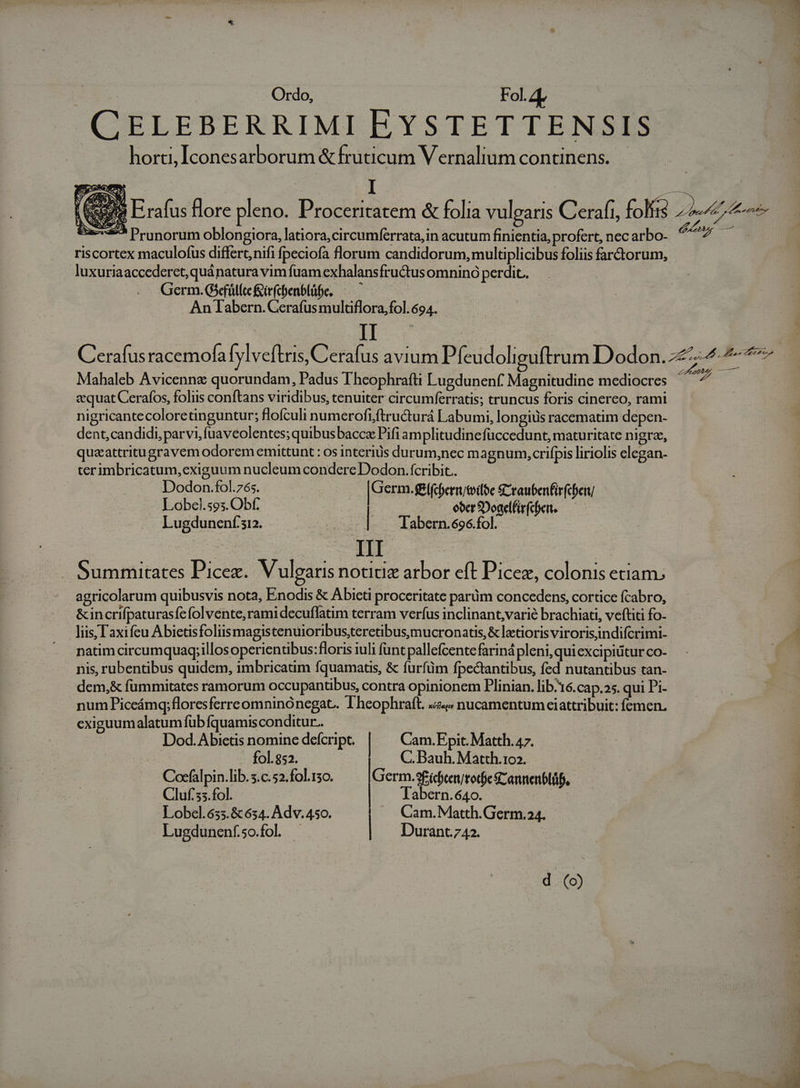 Ordo, Fol. 4
CELEBERRIMI EYSTETTENSIS
horti, Icones arborum & fruticum Vernalium continens.
I
CErasus flore pleno. Proceritatem & folia vulgaris Cerasi, foliis
Prunorum oblongiora, latiora, circumserrata, in acutum finientia, profert, nec arbo-
ris cortex maculosus differt, nisi speciosa florum candidorum, multiplicibus foliis farctorum,
luxuria accederet, quâ natura vim suam exhalans fructus omninò perdit.
Germ. Gefüllte Kirschenblühe.
An Tabern. Cerasus multiflora, fol. 694.
II
Cerasus racemosa sylvestris, Cerasus avium Pseudoligustrum Dodon.
Mahaleb Avicennæ quorundam, Padus Theophrasti Lugdunens. Magnitudine mediocres
æquat Cerasos, foliis constans viridibus, tenuiter circumserratis; truncus foris cinereo, rami
nigricante colore tinguntur; flosculi numerosi, structurâ Labumi, longiùs racematim depen-
dent, candidi, parvi, suaveolentes; quibus baccæ Pisi amplitudine succedunt, maturitate nigræ,
quæ attritu gravem odorem emittunt: os interiùs durum, nec magnum, crispis liriolis elegan-
ter imbricatum, exiguum nucleum condere Dodon. scribit.
Dodon. fol. 765. Germ. Elschern/ wilde Traubenkirschen/
Lobel. 593. Obs. oder Vogelkirschen.
Lugdunens. 312. Tabern. 696. fol.
III
Summitates Piceæ. Vulgaris notitiæ arbor est Piceæ, colonis etiam
agricolarum quibusvis nota, Enodis & Abieti proceritate parùm concedens, cortice scabro,
& in crispaturas se solvente, rami decussatim terram versus inclinant, variè brachiati, vestiti fo-
liis, Taxi seu Abietis foliis magis tenuioribus, teretibus, mucronatis, & lætioris viroris, indiscrimi-
natim circumquaq; illos operientibus: floris iuli sunt pallescente farinâ pleni, qui excipiūtur co-
nis, rubentibus quidem, imbricatim squamatis, & sursùm spectantibus, sed nutantibus tan-
dem, & summitates ramorum occupantibus, contra opinionem Plinian. lib. 16. cap. 25. qui Pi-
num Piceámq; flores ferre omninò negat. Theophrast. nucamentum ei attribuit: semen
exiguum alatum sub squamis conditur.
Dod. Abietis nomine descript. Cam. Epit. Matth. 47.
fol. 852. C. Bauh. Matth. 102.
Cœsalpin. lib. 3. c. 52. fol. 130. Germ. Fichten/ rothe Tannenblüh.
Clus. 35. fol. Tabern. 640.
Lobel. 635. & 634. Adv. 450. Cam. Matth. Germ. 24.
Lugdunens. 50. fol. Durant. 742.
d (o)